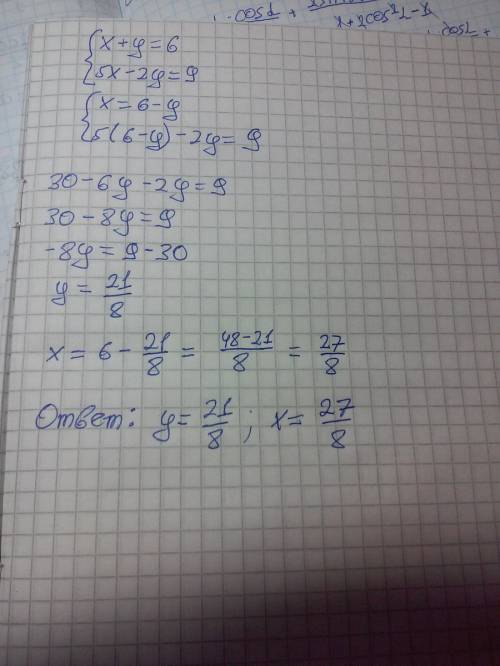 cosα + x + 2cos²α - x cosα +
{ x + y = 6
{ 5x - 2y = 9
{ x = 6 - y
{ 5(6 - y) - 2y = 9
30 - 6y - 2y = 9
30 - 8y = 9
-8y = 9 - 30
y = 21/8
x = 6 - 21/8 = (48-21)/8 = 27/8
Ответ: y = 21/8 ; x = 27/8